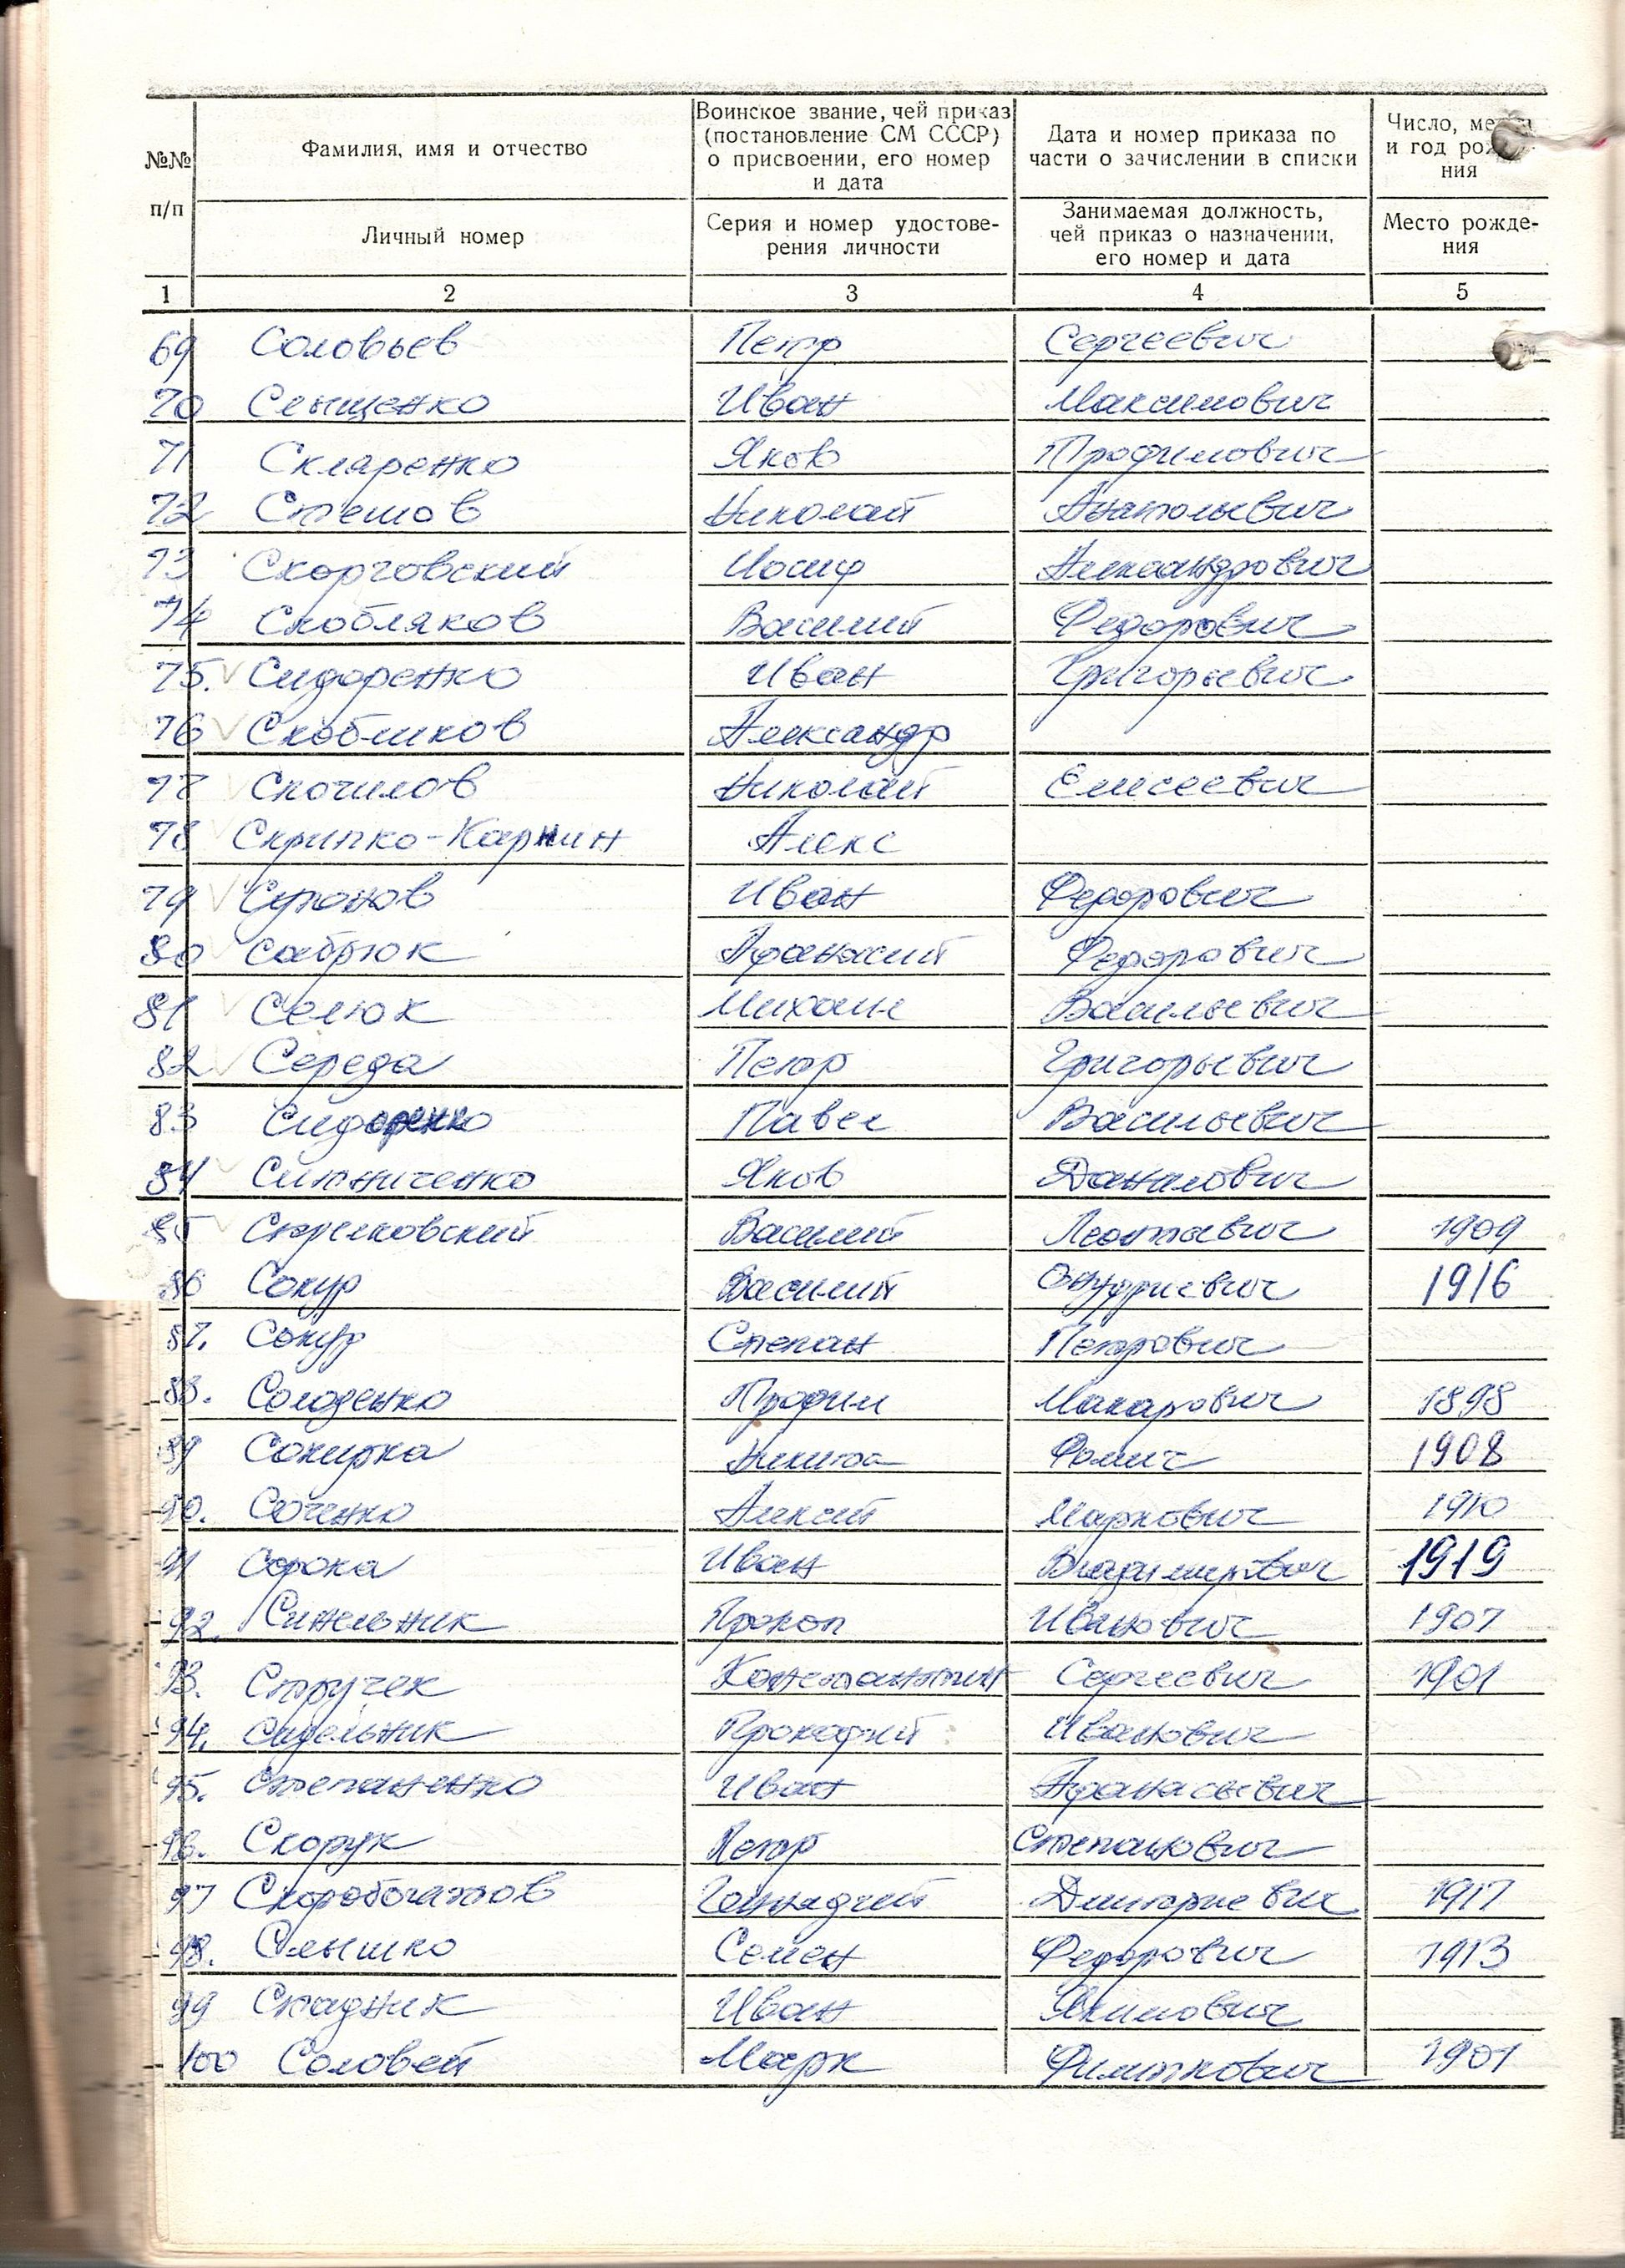 №№ п/п
Фамилия, имя и отчество
Личный номер
Воинское звание, чей приказ (постановление СМ СССР) о присвоении, его номер и дата
Серия и номер удостоверения личности
Дата и номер приказа по части о зачислении в списки
Занимаемая должность, чей приказ о назначении, его номер и дата
Число, и год
Место рождения
1 2 3 4 5
69 Соловьев Петр Сергеевич
70 Слыщенко Иван Максимович
71 Скляренко Яков Трофимович
72 Николай Анатольевич
73 Скорговский Иосиф Александрович
74 Скобляков Василий Федорович
75. Сидоренко Иван Григорьевич
76 Скобликов Александр
77 Скочилов Николай Елисеевич
78 Скрипко-Карнин Алекс
79 Супонов Иван Федорович
80 Сабрюк Афанасий Федорович
81 Селюк Михаил Васильевич
82 Середа Петр Григорьевич
83 Сидоренко Павел Васильевич
84 Ситниченко Яков Данилович
85 Василий Леонтьевич 1909
86 Сокур Василий 1916
87. Сокур Степан Петрович
88. Солоденко Трофим Макарович 1898
89 Сокирка Никита Фомич 1908
90. Соченко Алексей Маркович 1910
91 Сорока Иван Владимирович 1919
92. Синельник Прокоп Иванович 1907
93. Стручек Константин Сергеевич 1901
94. Сидельник Прокофий Иванович
95. Степаненко Иван Афанасьевич
96. Скорук Петр Степанович
97 Скоробогатов Геннадий Дмитриевич 1917
98. Слышко Семен Федорович 1913
99 Складник Иван Якимович
100 Соловей Марк 1901